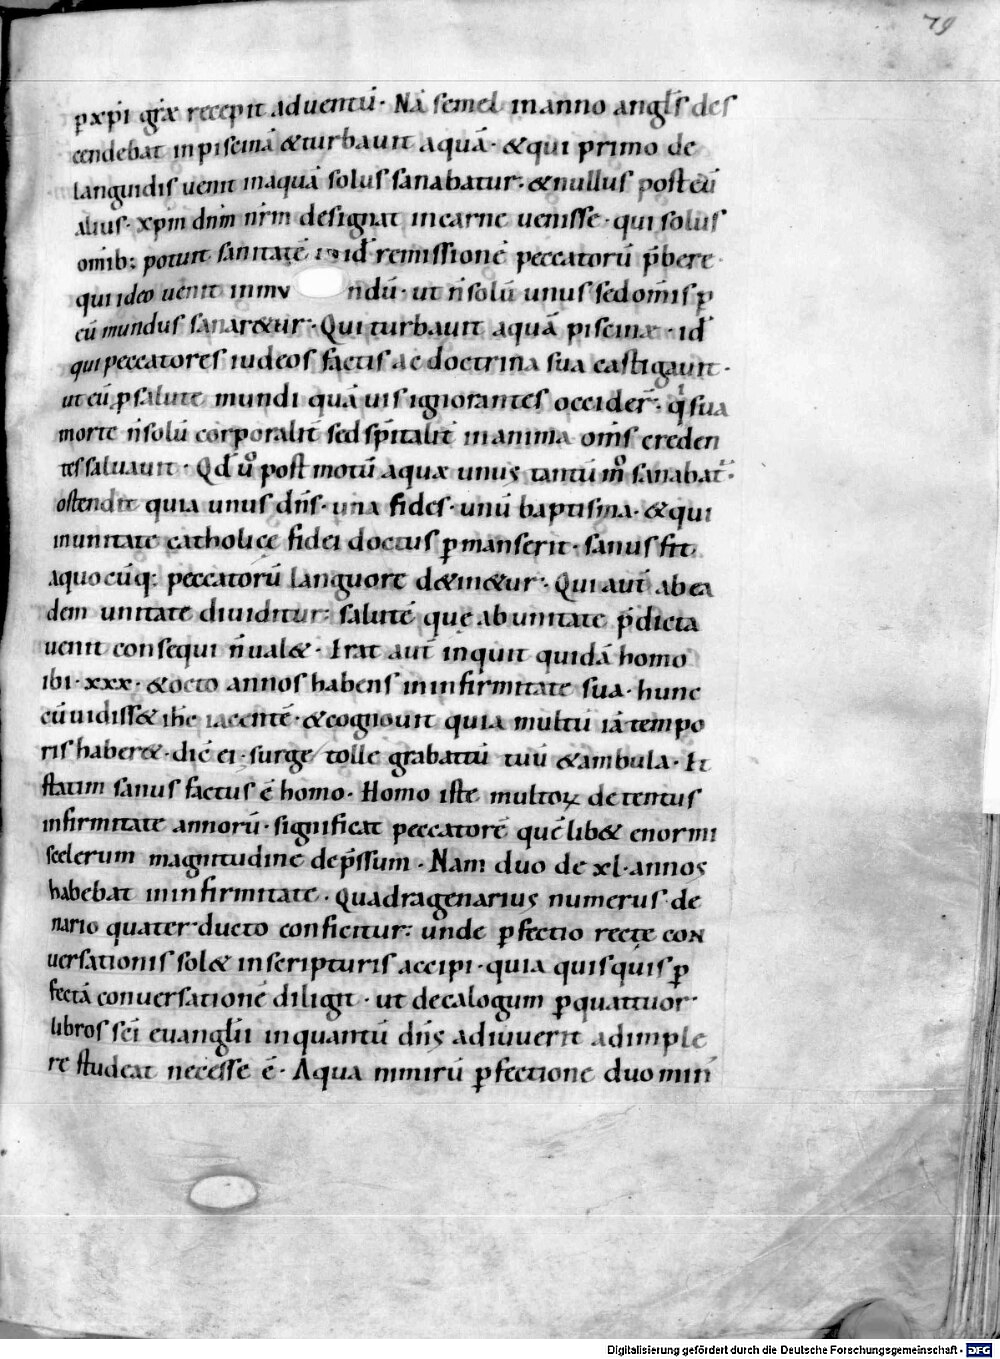 79
p xp̄i gr̄ā recepit aduentū· Nā semel in anno angl̄s des
cendebat in piscinā &turbauit aquā· &qui primo de
languidis uenit in aquā solus sanabatur· &nullus post eū
alius· xp̄m dn̄m nr̄m designat in carne uenisse· qui solus
omib; potuit sanitatē id̄ remissionē peccatorū p̄bere·
qui ideo uenit in mu ndū· ut n̄ solū unus sed om̄is p
eū mundus sanar&ur· Qui turbauit aquā piscinæ· id̄
qui peccatores iudeos factis ac doctrina sua castigauit·
ut eū p salute mundi quāuis ignorantes occider̄· q̇ sua
morte n̄ solū corporalit̄ sed sp̄italit̄ in anima om̄s creden
tes saluauit· Qd̄ u̇o post motū aquæ unus tantū m̊ sanabat̄·
ostendit quia unus dn̄s· una fides· unū baptisma· &qui
in unitate catholicę fidei doctus p manserit· sanus fit
a quocūq; peccatorū languore d&in&ur· Qui aut̄ ab ea
dem unitate diuiditur· salutē quę ab unitate p̄dicta
uenit consequi n̄ ual&· Erat aut̄ inquit quidā homo
ibi· xxx· &octo annos habens in infirmitate sua· hunc
cū uidiss& ih̄c iacentē· &cognouit quia multū iā tempo
ris haber&· dic̄ ei· surge tolle grabattū tuū &ambula· Et
statim sanus factus ē homo· Homo iste multoꝝ detentus
infirmitate annorū· significat peccatorē quēlib& enormi
scelerum magnitudine dep̄ssum· Nam duo de xl· annos
habebat in infirmitate· Quadragenarius numerus de
nario quater ducto conficitur· unde p fectio recte con
uersationis sol& in scripturis accipi· quia quisquis p
fectā conuersationē diligit· ut decalogum p quattuor
libros sc̄i euangl̄ii in quantū dn̄s adiuuerit adimple
re studeat necesse ē· A qua nimirū p fectione duo min̄
Digitalisierung gefördert durch die Deutsche Forschungsgemeinschaft - DFG